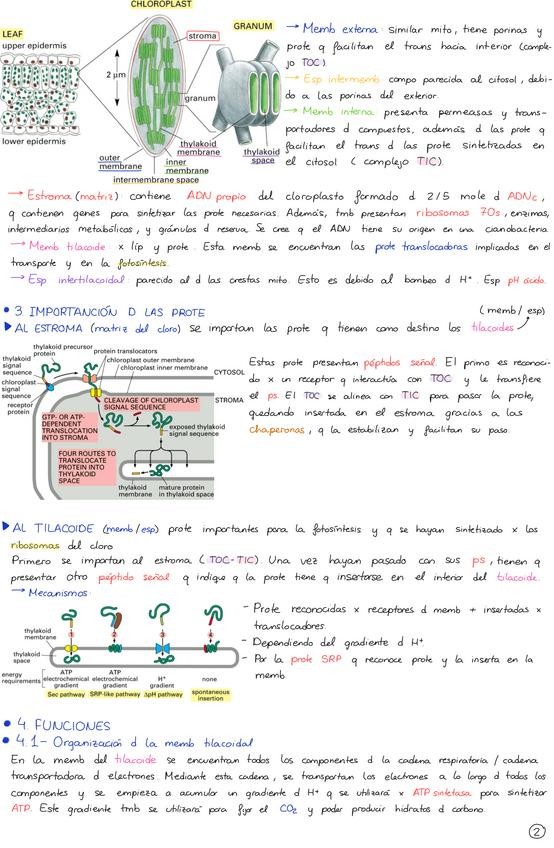 CHLOROPLAST
LEAF
upper epidermis
lower epidermis
2 µm
GRANUM
stroma
granum
thylakoid membrane
thylakoid space
outer membrane
inner membrane
intermembrane space
→ Memb externa: similar mito, tiene porinas y
prote q facilitan el trans hacia interior (comple-
jo TOC).
→ Esp intermemb compo parecida al citosol, debi-
do a las porinas del exterior.
→ Memb interna: presenta permeasas y trans-
portadores d compuestos, además d las prote q
facilitan el trans d las prote sintetizadas en
el citosol ( complejo TIC).
→ Estroma (matriz): contiene ADN propio del cloroplasto formado d 2/5 mole d ADNc,
q contienen genes para sintetizar las prote necesarias. Además, tmb presentan ribosomas 70s, enzimas,
intermediarios metabólicos, y gránulos d reserva. Se cree q el ADN tiene su origen en una cianobacteria.
→ Memb tilacoide: x líp y prote. Esta memb se encuentran las prote translocadoras implicadas en el
transporte y en la fotosíntesis.
→ Esp intertilacoidal: parecido al d las crestas mito. Esto es debido al bombeo d H⁺. Esp pH ácido.
• 3. IMPORTANCIÓN D LAS PROTE
(memb/esp)
▶ AL ESTROMA (matriz del cloro) se importan las prote q tienen como destino los tilacoides
thylakoid precursor protein
thylakoid signal sequence
chloroplast signal sequence
receptor protein
protein translocators
chloroplast outer membrane
chloroplast inner membrane
CYTOSOL
STROMA
CLEAVAGE OF CHLOROPLAST SIGNAL SEQUENCE
GTP- OR ATP-DEPENDENT TRANSLOCATION INTO STROMA
exposed thylakoid signal sequence
FOUR ROUTES TO TRANSLOCATE PROTEIN INTO THYLAKOID SPACE
thylakoid membrane
mature protein in thylakoid space
Estas prote presentan péptidos señal. El primo es reconoci-
do x un receptor q interactúa con TOC y le transfiere
el ps. El TOC se alinea con TIC para pasar la prote,
quedando insertada en el estroma gracias a las
chaperonas, q la estabilizan y facilitan su paso.
▶ AL TILACOIDE (memb/esp) prote importantes para la fotosíntesis y q se hayan sintetizado x los
ribosomas del cloro.
Primero se importan al estroma (TOC-TIC). Una vez hayan pasado con sus ps, tienen q
presentar otro péptido señal q indique q la prote tiene q insertarse en el interior del tilacoide.
→ Mecanismos:
thylakoid membrane
thylakoid space
1 2 3 4
energy requirements
ATP electrochemical gradient
ATP electrochemical gradient
H⁺ gradient
none
Sec pathway
SRP-like pathway
ΔpH pathway
spontaneous insertion
- Prote reconocidas x receptores d memb + insertadas x
translocadores.
- Dependiendo del gradiente d H⁺.
- Por la prote SRP q reconoce prote y la inserta en la
memb.
• 4. FUNCIONES
• 4.1- Organización d la memb tilacoidal
En la memb del tilacoide se encuentran todos los componentes d la cadena respiratoria / cadena
transportadora d electrones. Mediante esta cadena, se transportan los electrones a lo largo d todos los
componentes y se empieza a acumular un gradiente d H⁺ q se utilizará x ATP sintetasa para sintetizar
ATP. Este gradiente tmb se utilizará para fijar el CO₂ y poder producir hidratos d carbono.
2